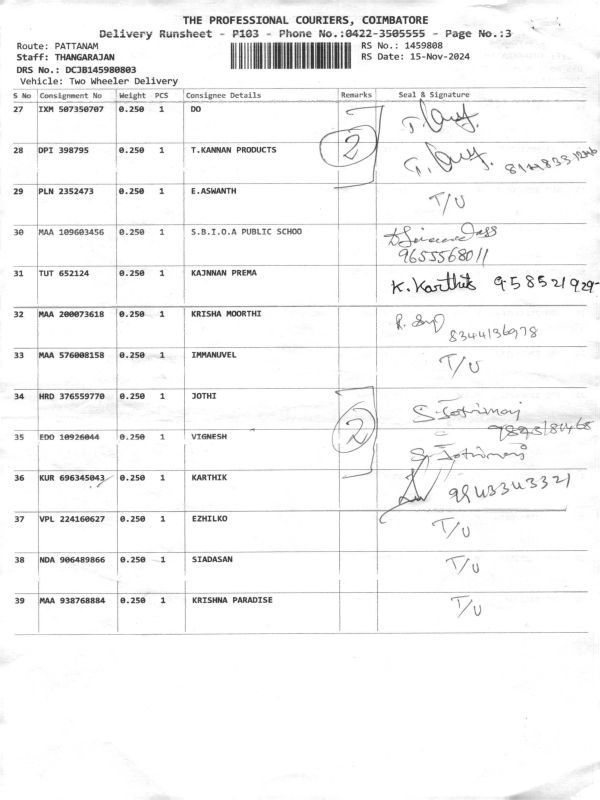 THE PROFESSIONAL COURIERS, COIMBATORE
Delivery Runsheet - P103 - Phone No.:0422-3505555 - Page No.:3
Route: PATTANAM RS No.: 1459808
Staff: THANGARAJAN RS Date: 15-Nov-2024
DRS No.: DCJB145980803
Vehicle: Two Wheeler Delivery
S No Consignment No Weight PCS Consignee Details Remarks Seal & Signature
27 IXM 507350707 0.250 1 DO
28 DPI 398795 0.250 1 T.KANNAN PRODUCTS 2
29 PLN 2352473 0.250 1 E.ASWANTH T/U
30 MAA 109603456 0.250 1 S.B.I.O.A PUBLIC SCHOO
9655568011
31 TUT 652124 0.250 1 KAJNNAN PREMA K. Karthik 958521929-
32 MAA 200073618 0.250 1 KRISHA MOORTHI
8344136978
33 MAA 576008158 0.250 1 IMMANUVEL T/U
34 HRD 376559770 0.250 1 JOTHI
35 EDO 10926044 0.250 1 VIGNESH 2
36 KUR 696345043 0.250 1 KARTHIK 9943343321
37 VPL 224160627 0.250 1 EZHILKO T/U
38 NDA 906489866 0.250 1 SIADASAN T/U
39 MAA 938768884 0.250 1 KRISHNA PARADISE T/U